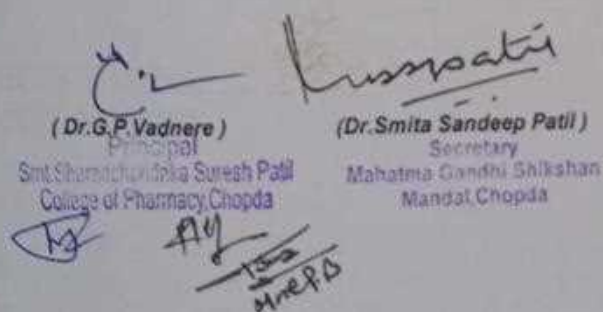 ( Dr.G.P.Vadnere )
Principal
Smt.Sharadchandrika Suresh Patil
College of Pharmacy,Chopda
(Dr.Smita Sandeep Patil )
Secretary
Mahatma Gandhi Shikshan
Mandal,Chopda